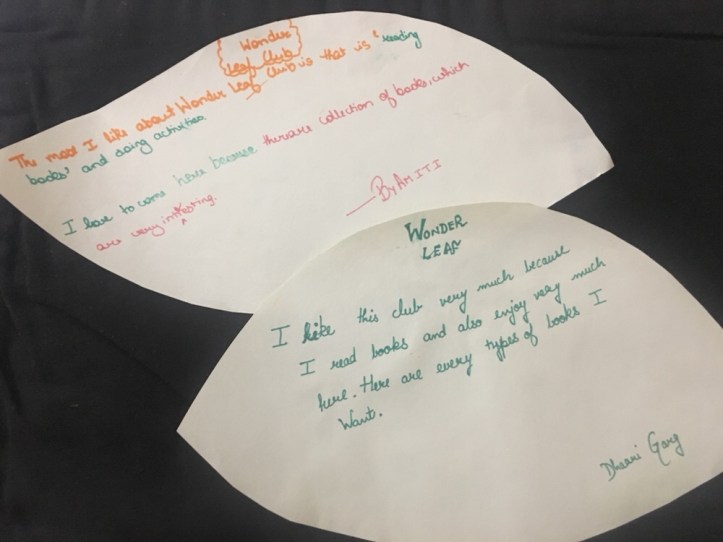 Wonder
Leaf Club
The most I like about Wonder Leaf Club is that is 'reading
books' and doing activities.
I love to come here because thereare collection of books, which
are very intresting.
By AMITI
WONDER
LEAF
I like this club very much because
I read books and also enjoy very much
here. Here are every types of books I
Want.
Garg